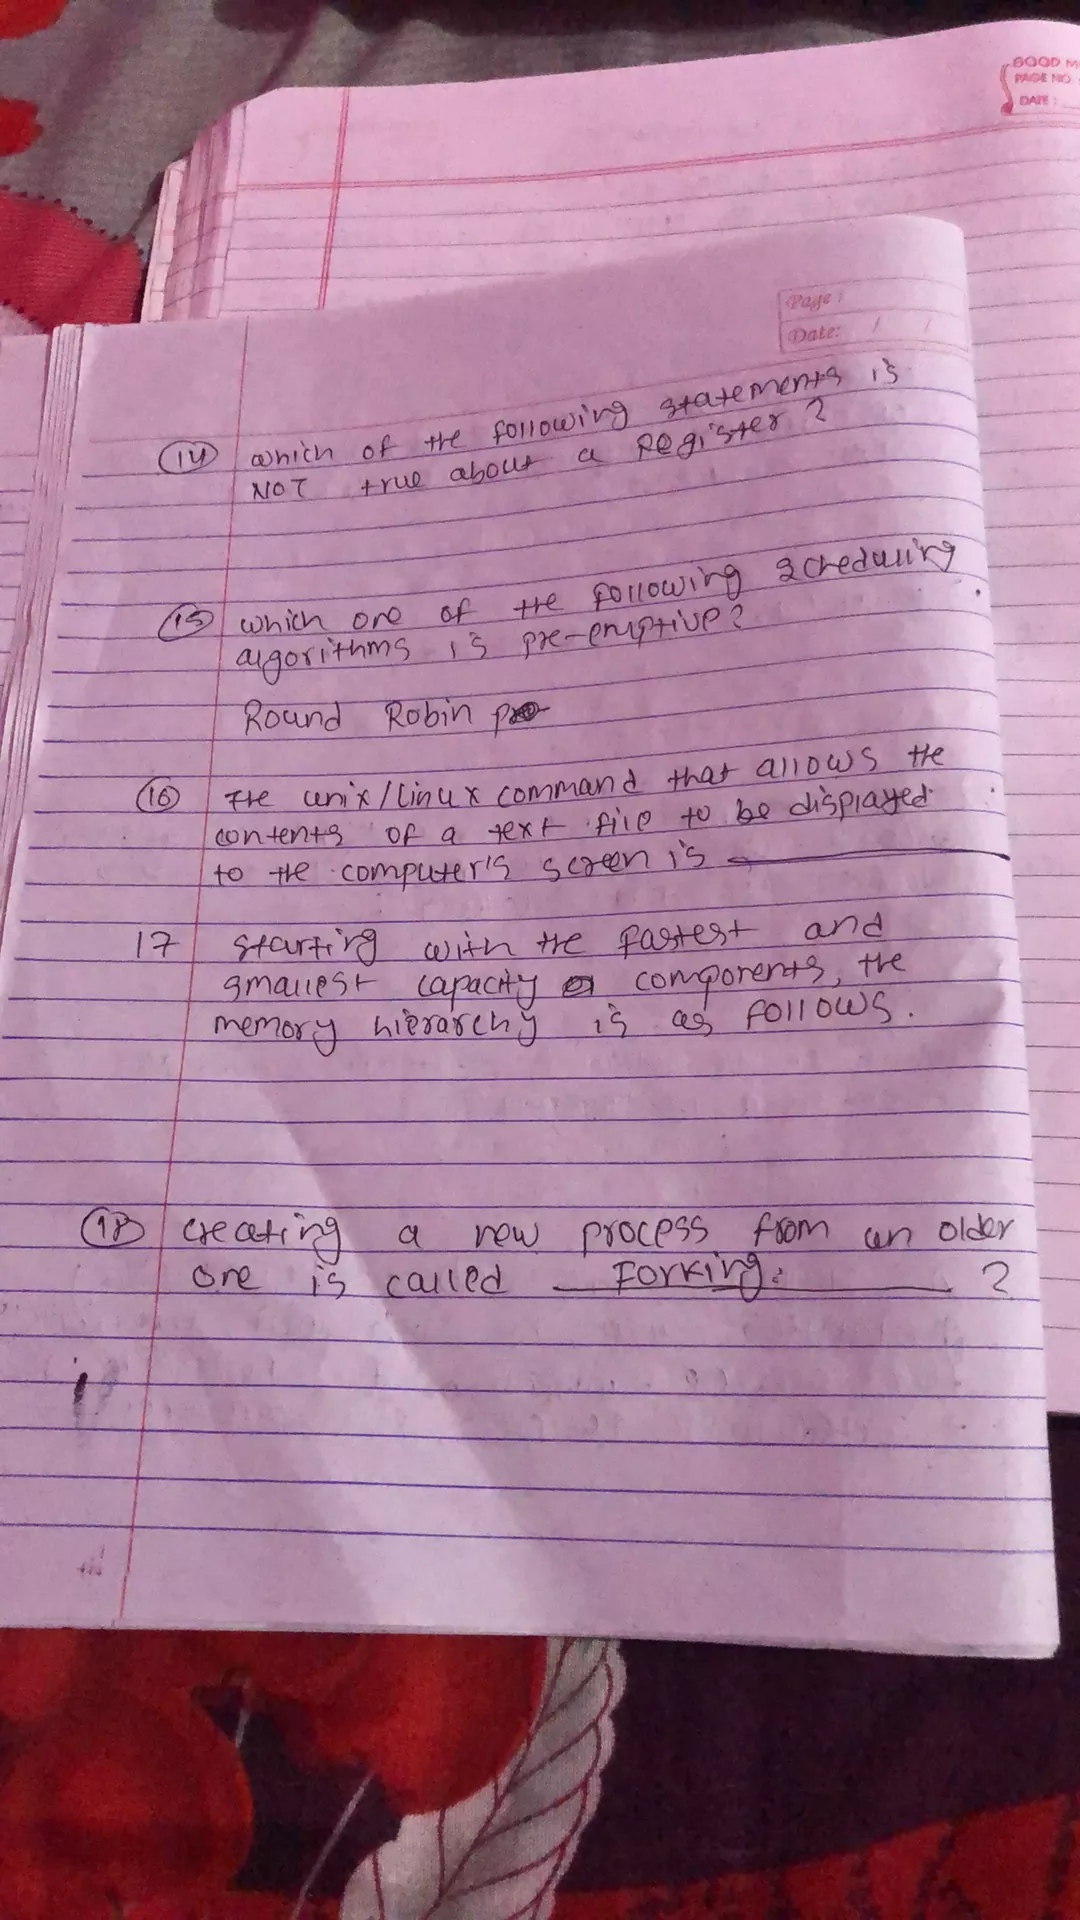 GOOD
PAGE NO.
DATE:
Page:
Date: / /
14 which of the following statements is
NOT true about a Register?
15 which one of the following scheduling
algorithms is pre-emptive?
Round Robin
16 The unix/linux command that allows the
contents of a text file to be displayed
to the computer's screen is
17 starting with the fastest and
smallest capacity components, the
memory hierarchy is as follows.
18 creating a new process from an older
one is called Forking. ?